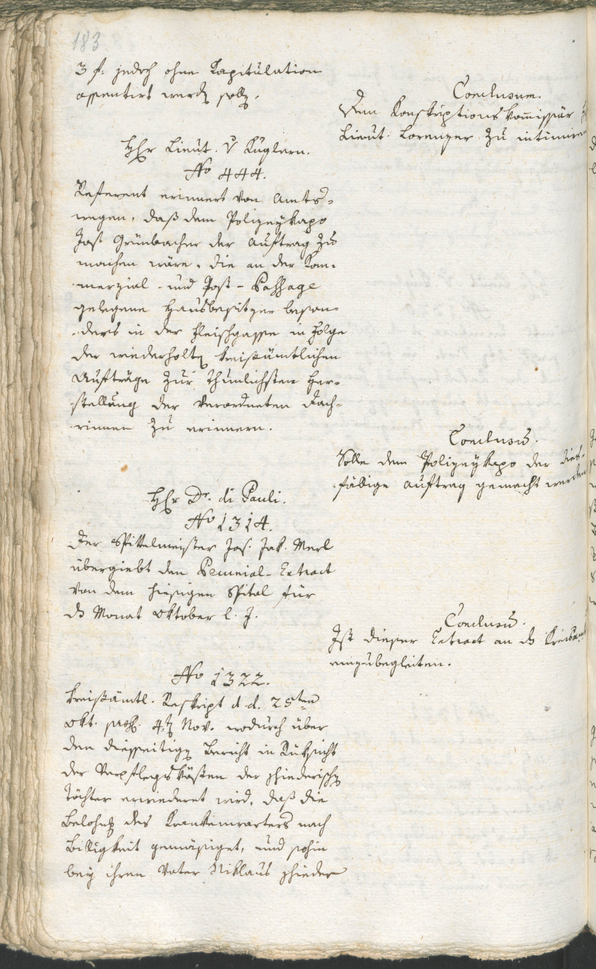 183
3 f. jedoch ohne Kapitulation
assentirt werden solle.
Conclusum.
Dem Konskriptionskommissär
Lieut. Lorenzer zu intimiren
Hr Lieut. v Kuglern.
No 444.
Referent erinnert von Amts-
wegen, daß dem Polizeykapo
Jos. Grünbacher der Auftrag zu
machen wäre, die an der Kom-
merzial- und Post-Passage
gelegene Hausbesitzer beson-
ders in der Fleischgasse in Folge
der wiederholten kreisämtlichen
Aufträge zur thunlichsten Her-
stellung der verordneten Dach-
rinnen zu erinnern.
Conclusum.
Solle dem Polizeykapo der dies-
fällige Auftrag gemacht werden
Hr Dr. di Pauli.
No 1314.
Der Spittelmeister Jos. Jak. Merl
übergiebt den Pecunial-Extract
von dem hiesigen Spital für
das Monat Oktober l. J.
Conclusum.
Ist dieser Extract an das Kreisamt
einzubegleiten.
No 1322.
Kreisämtl. Reskript d. d. 29ten
Okt. pres. 4t Nov. wodurch über
den diesseitigen Bericht in Rücksicht
der Verpflegskösten der
Töchter erwiedert wird, daß die
Belohng des Krankenwarters nach
Billigkeit gemäsiget, und sohin
bey ihren Vater Niklaus